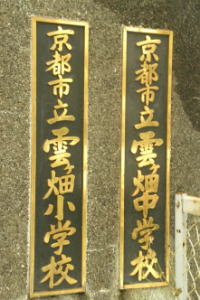 京都市立雲畑小学校
京都市立雲畑中学校